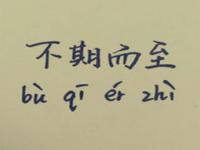 不期而至
bù qī ér zhì